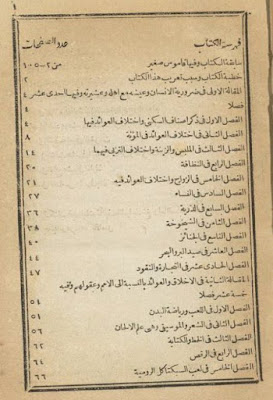 فهرسة الكتاب عدد الصفحات
سابقة الكتاب وفيها قاموس صغير من ٢–١٠٥
خطبة الكتاب وسبب تعريب هذا الكتاب ٢
المقالة الاولى فى ضرورية الانسان وعيشه مع اهله وعشيرته وفيها احدى عشر ٤
فصلا
الفصل الاول فى ذكر اصناف السكنى واختلاف العوائد فيها ٤
الفصل الثانى فى اختلاف العوائد فى المؤنة ٨
الفصل الثالث فى الملبس والزينة واختلاف العرف فيهما ١٤
الفصل الرابع فى النظافة ٢٠
الفصل الخامس فى الزواج واختلاف العوائد فيه ٢١
الفصل السادس فى النساء ٢٧
الفصل السابع فى الذرية ٣٦
الفصل الثامن فى الشيخوخة ٣٨
الفصل التاسع فى الجنائز ٤٠
الفصل العاشر فى صيد البر والبحر ٤٤
الفصل الحادى عشر فى التجارة والنقود ٤٧
المقالة الثانية فى الاخلاق والعوائد بالنسبة الى الامم وعقولهم وفيه
خمسة عشر فصلا ٥٤
الفصل الاول فى اللعب ورياضة البدن ٥١
الفصل الثانى فى الشعر والموسيقى وهى علم الالحان ٥٦
الفصل الثالث فى الخط والكتابة ٦٢
الفصل الرابع فى الرقص ٦٤
الفصل الخامس فى لعب السبكتاكل الرومية ٦٦